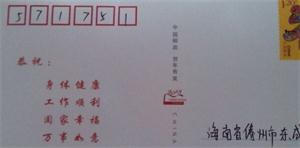 571751
恭祝：
身体健康
工作顺利
阖家幸福
万事如意
中国邮政 贺年有奖
CHINA
1.20
海南省儋州市东成